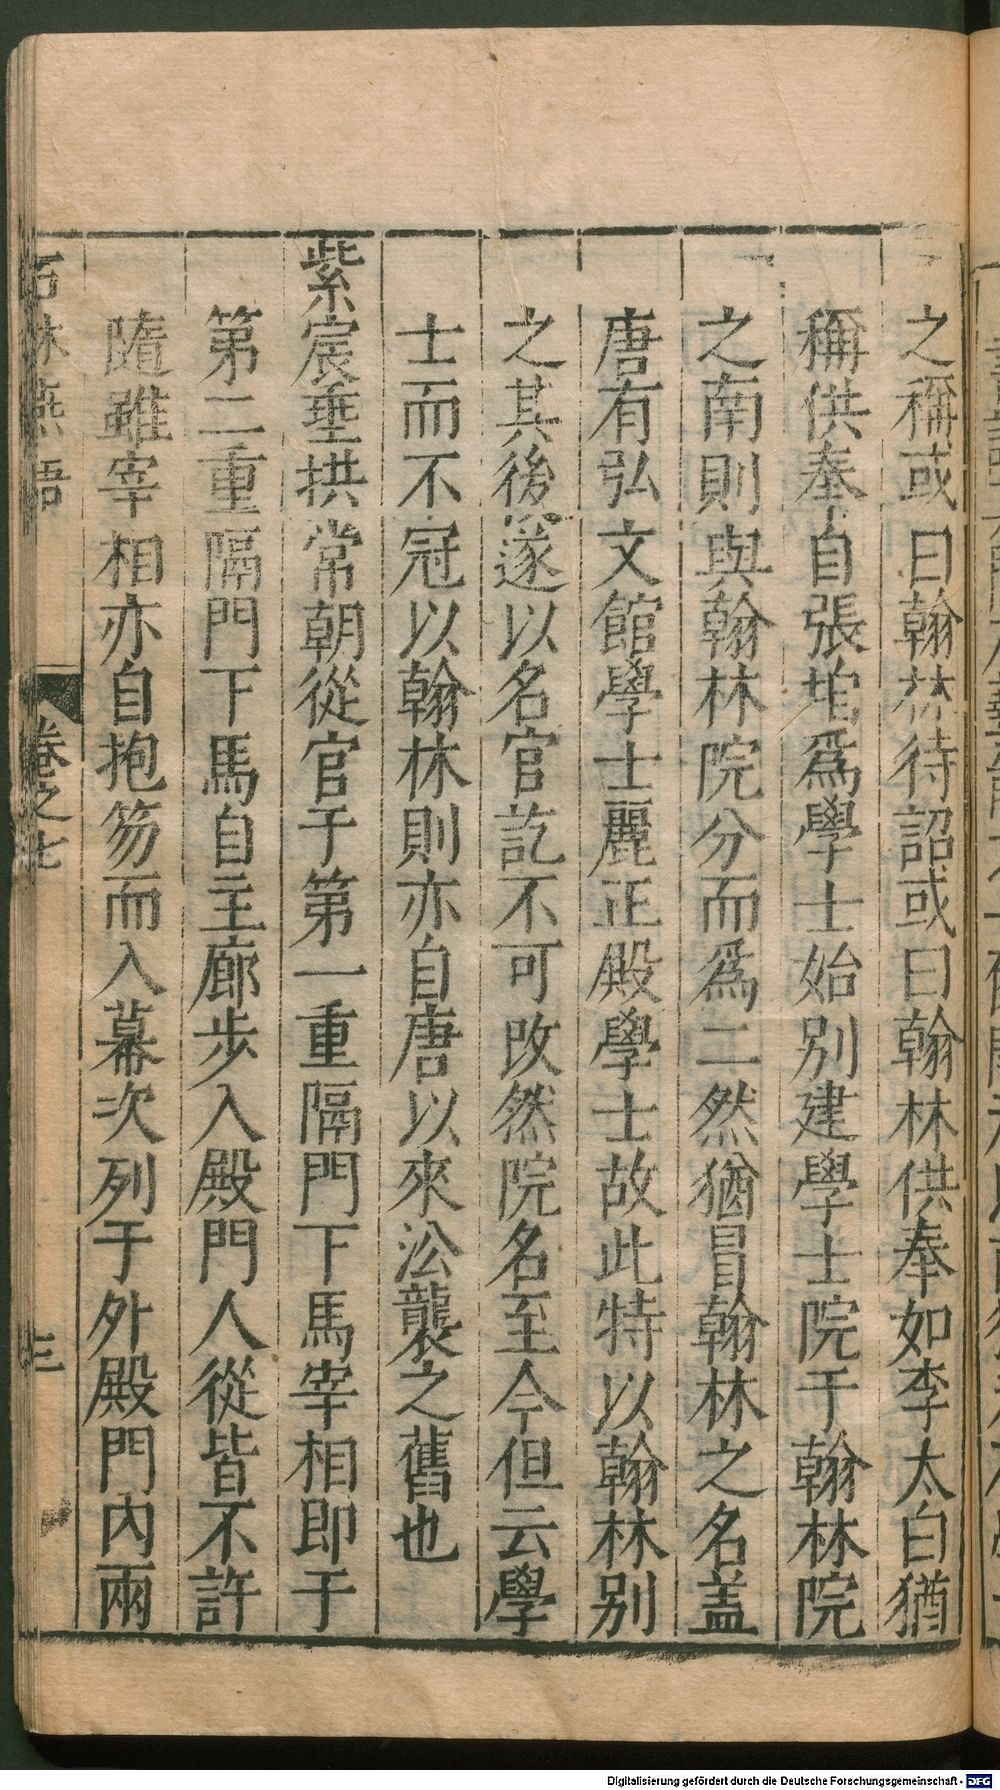 之稱或曰翰林待詔或曰翰林供奉如李太白猶
稱供奉自張垍爲學士始别建學士院于翰林院
之南則與翰林院分而爲二然猶冒翰林之名盖
唐有弘文館學士麗正殿學士故此特以翰林别
之其後遂以名官訖不可改然院名至今但云學
士而不冠以翰林則亦自唐以來㳂襲之舊也
紫宸垂拱常朝從官于第一重隔門下馬宰相即于
第二重隔門下馬自主廊步入殿門人從皆不許
隨雖宰相亦自抱笏而入幕次列于外殿門内兩
石林燕語
卷之七
三
Digitalisierung gefördert durch die Deutsche Forschungsgemeinschaft - DFG